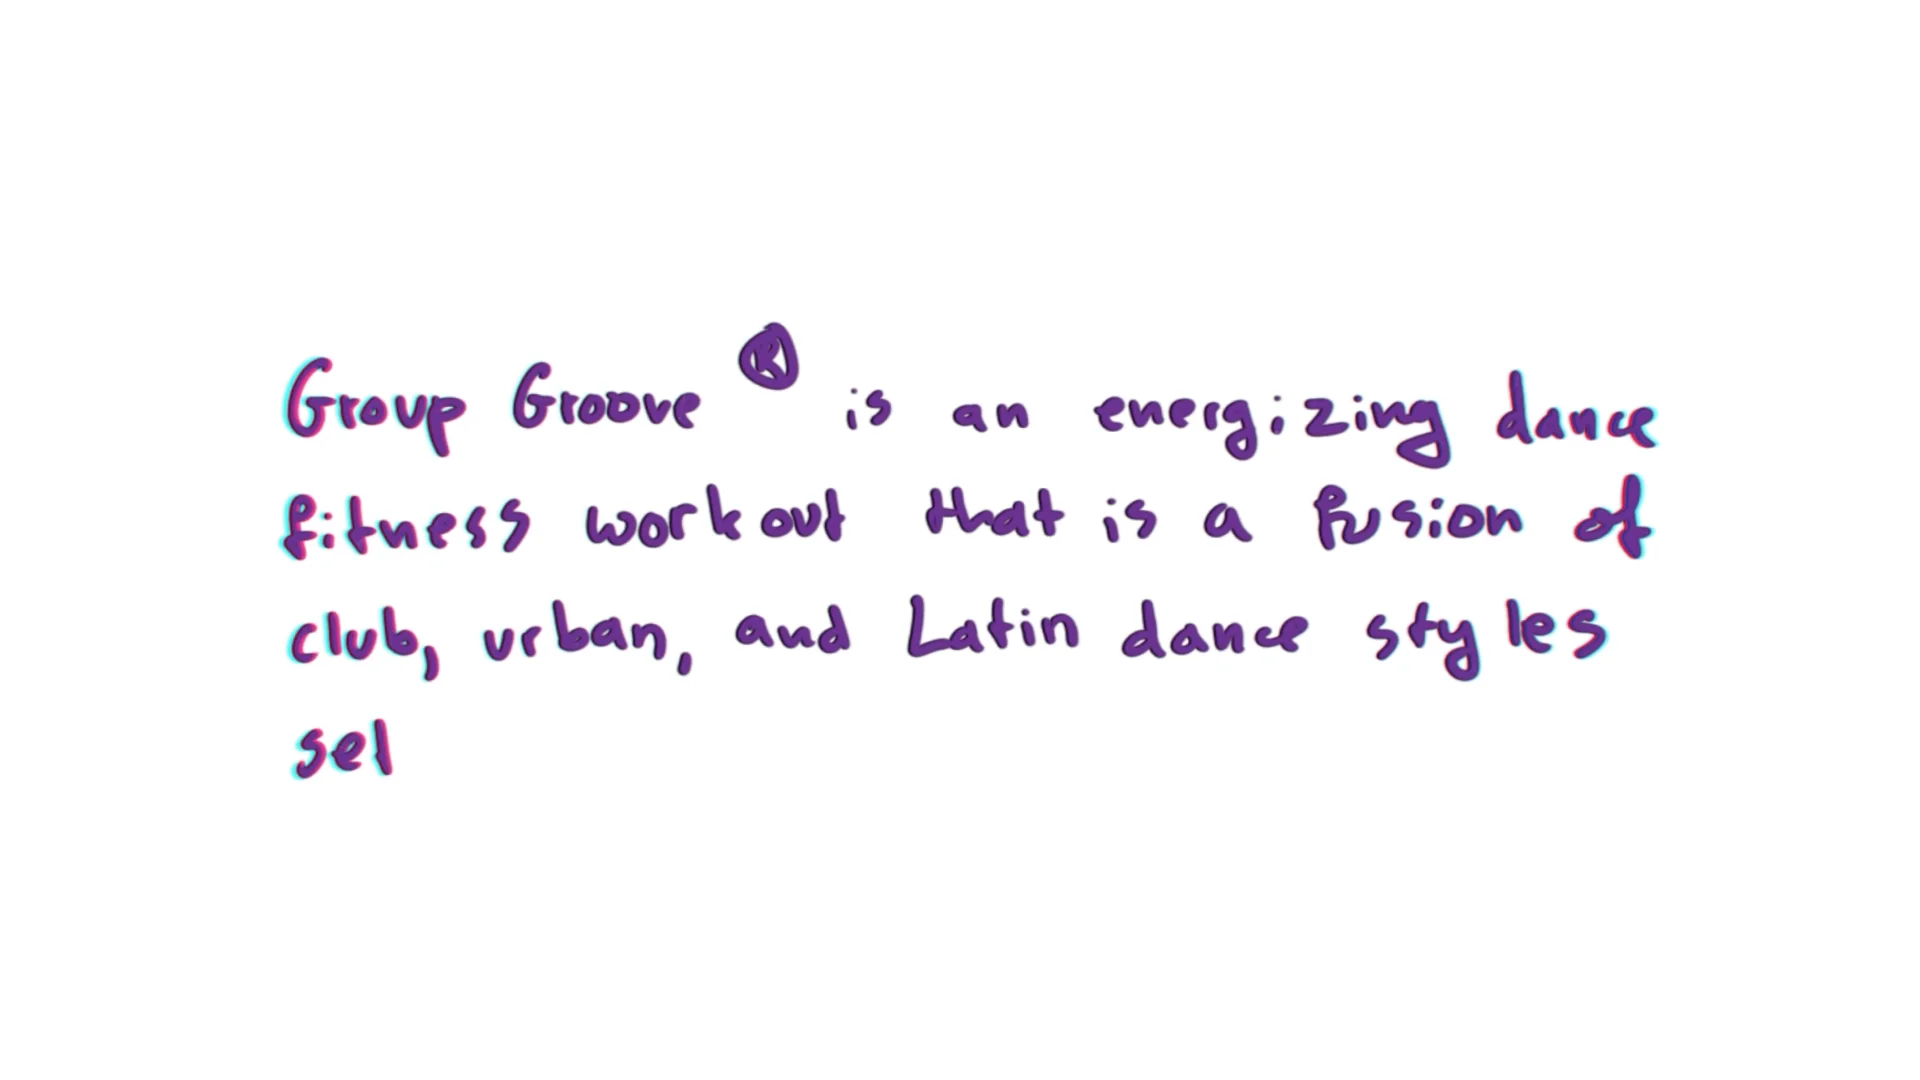 Group Groove ® is an energizing dance
fitness workout that is a fusion of
club, urban, and Latin dance styles
sel